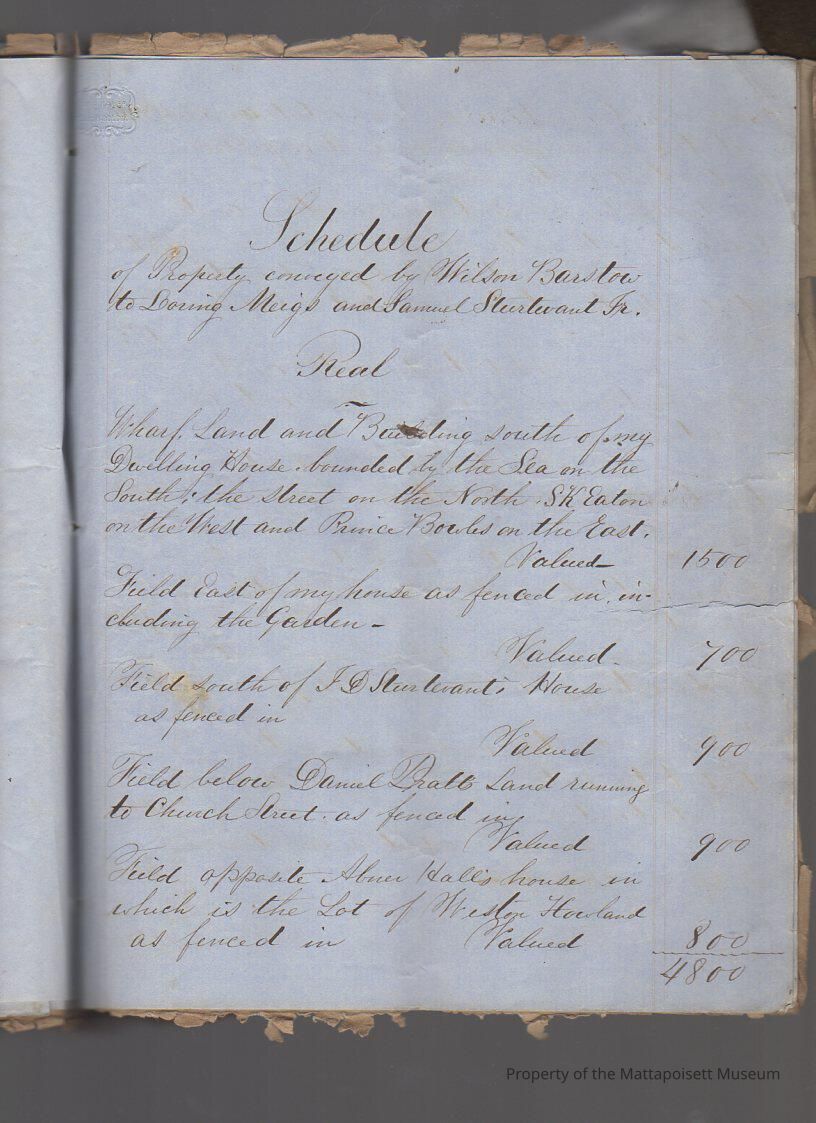 Schedule
of Property conveyed by Wilson Barstow
to Loring Meigs and Samuel Sturtevant Jr.
Real
Wharf, Land and Building south of my
Dwelling House. bounded by the Sea on the
South; the street on the North. S K Eaton
on the West and Prince Bowles on the East.
Valued 1500
Field East of my house as fenced in, in-
cluding the Garden -
Valued. 700
Field south of J D Sturtevant's House
as fenced in
Valued 900
Field below Daniel Pratts Land running
to Church Street. as fenced in
Valued 900
Field opposite Abner Hall's house in
which is the Lot of Weston Howland
as fenced in Valued 800
4800
Property of the Mattapoisett Museum